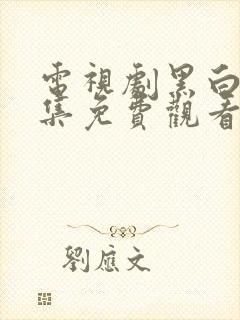 電視劇黑白
集免費觀看
劉應文